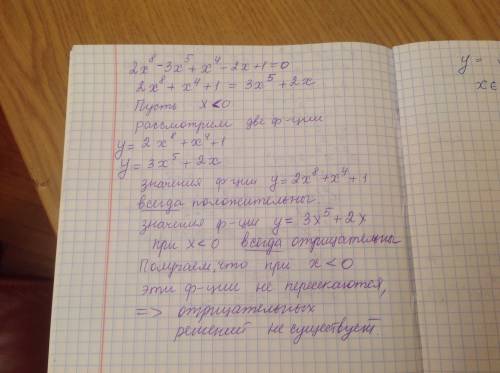 2x⁸-3x⁵+x⁴-2x+1=0
2x⁸+x⁴+1 = 3x⁵+2x
Пусть x<0
рассмотрим две ф-ции
y= 2x⁸+x⁴+1
y= 3x⁵+2x
значения ф-ции y=2x⁸+x⁴+1
всегда положительны.
значения ф-ции y= 3x⁵+2x
при x<0 всегда отрицательны
Получаем, что при x<0
эти ф-ции не пересекаются,
=> отрицательных
решений не существует
y=
x∈